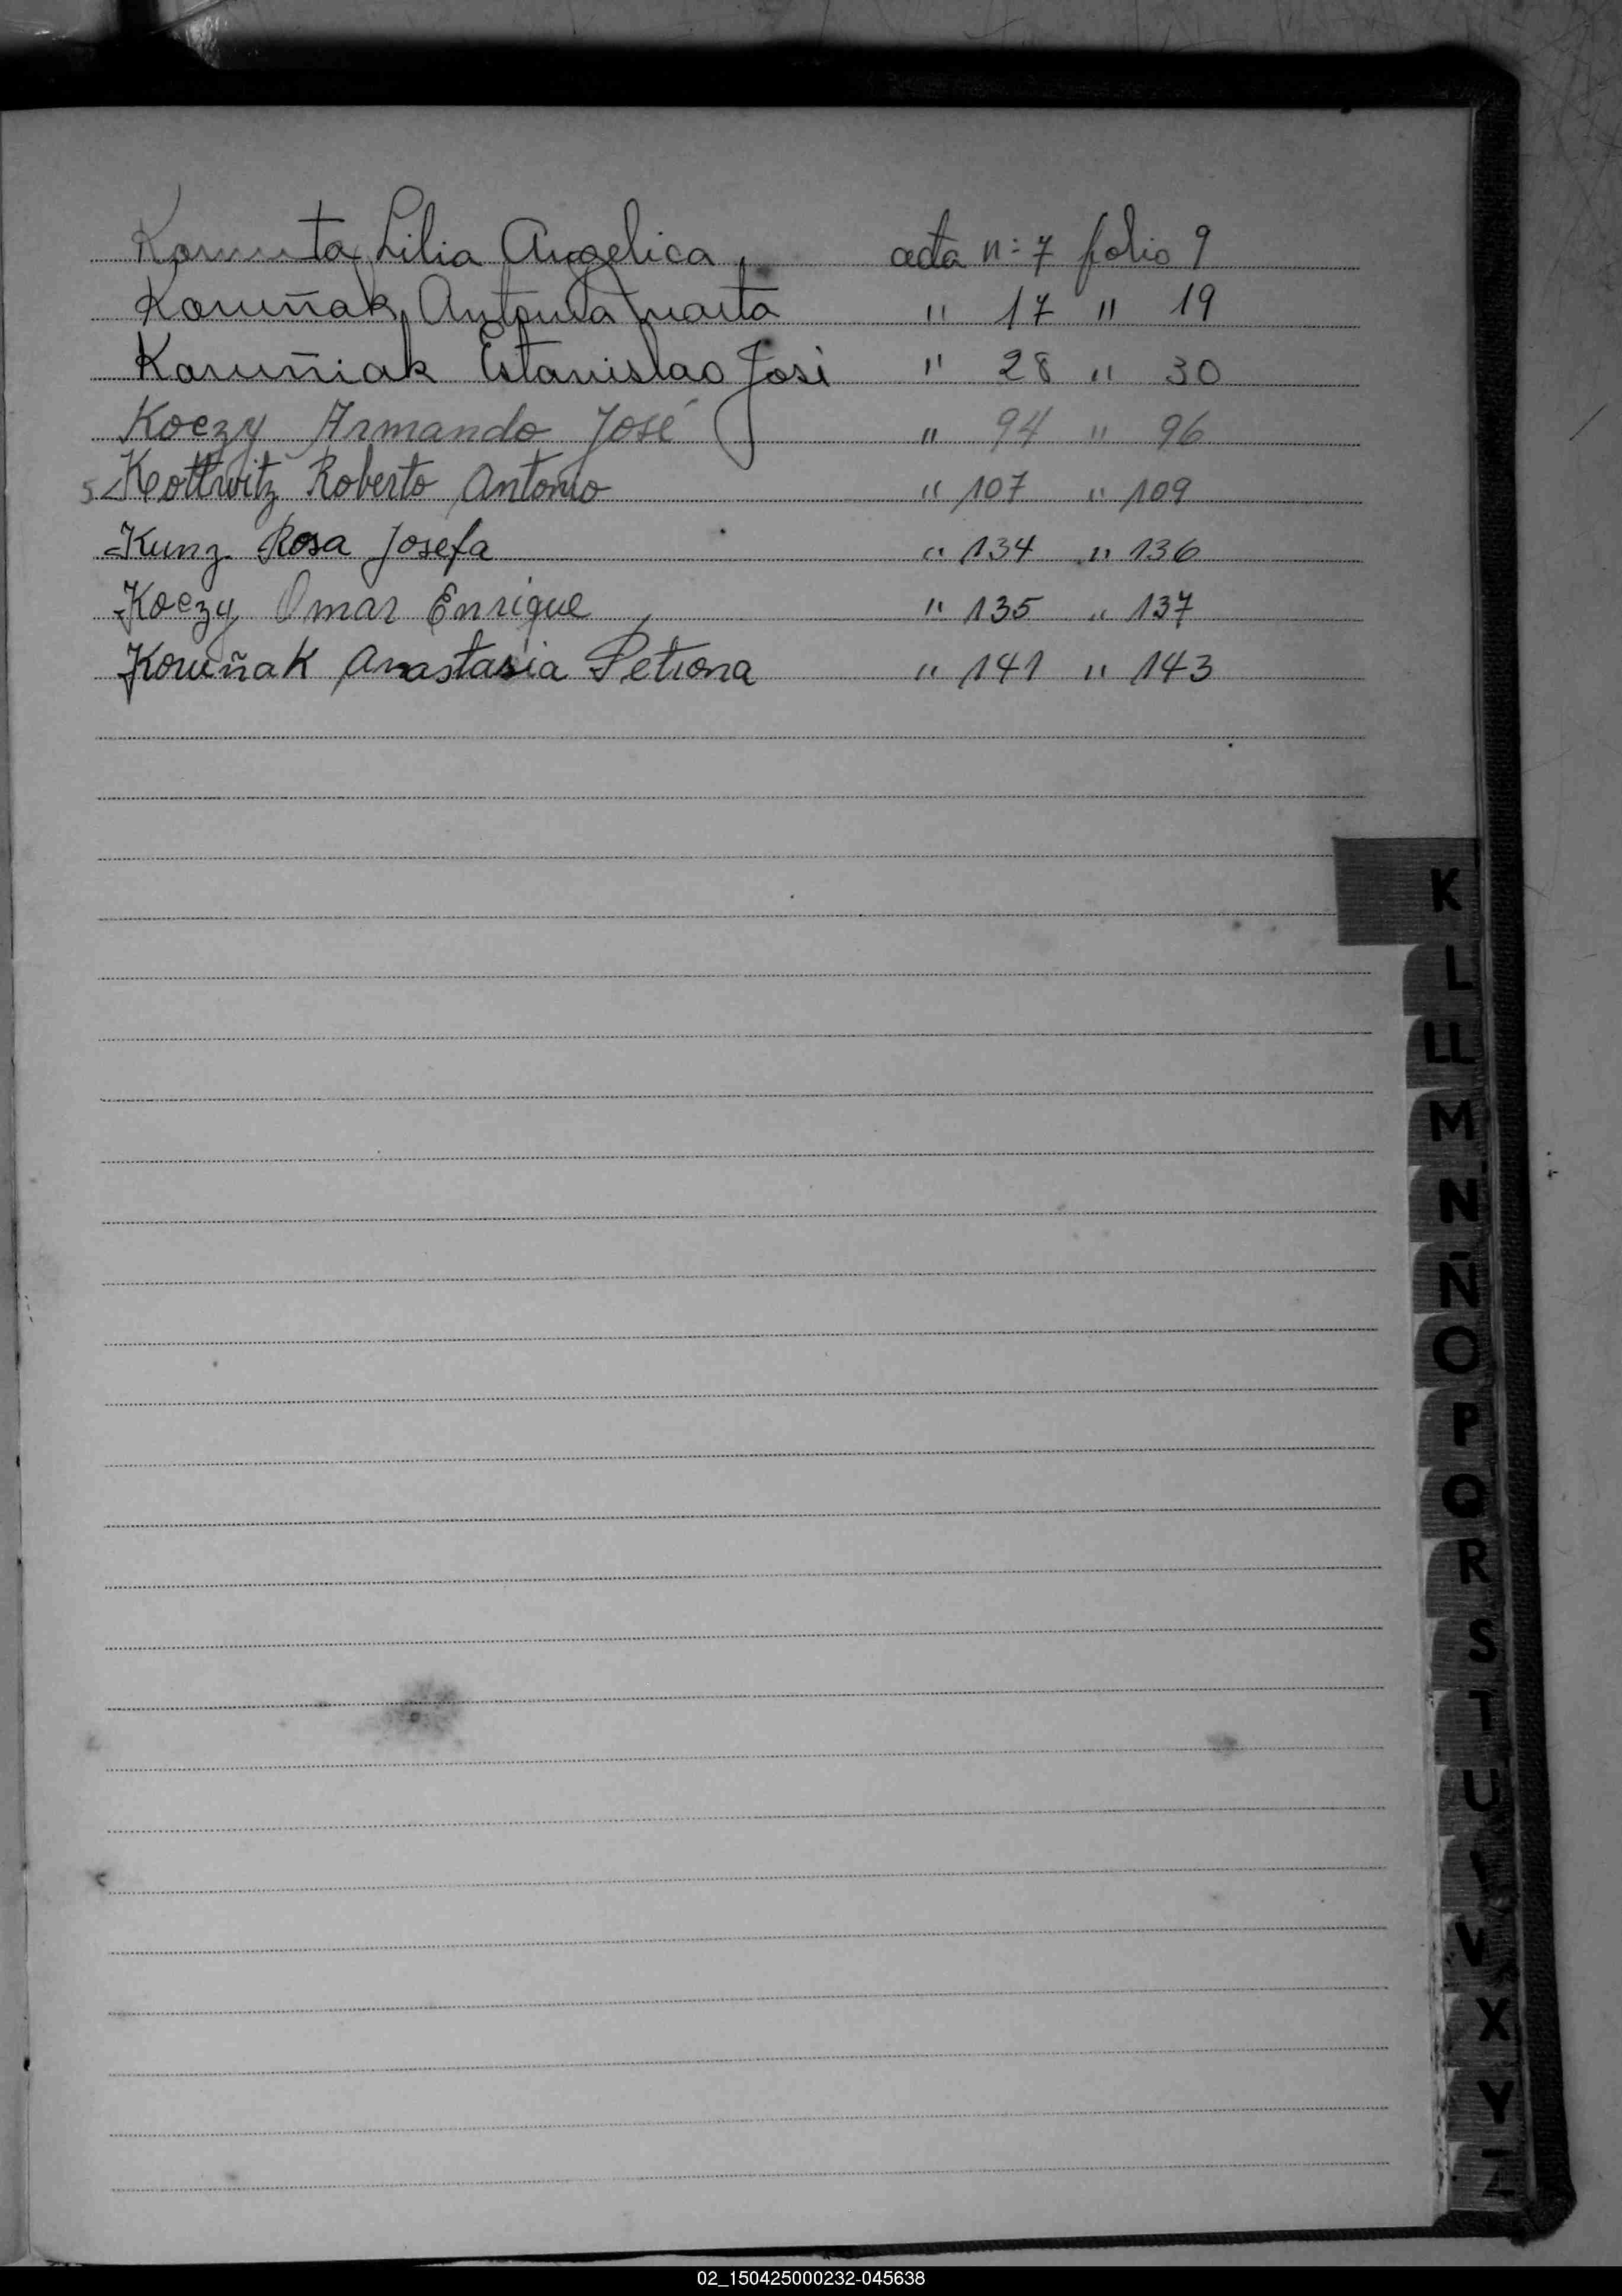 Kormuta Lilia Angelica acta n: 7 folio 9
Koruñak, Antonia Marta " 17 " 19
Karuñiak Estanislao José " 28 " 30
Koezy Armando José " 94 " 96
5 Kottwitz Roberto Antonio " 107 " 109
Kunz Rosa Josefa " 134 " 136
Koezy Omar Enrique " 135 " 137
Koruñak Anastasia Petrona " 141 " 143
K
L
LL
M
N
Ñ
O
P
Q
R
S
T
U
V
X
Y
Z
02_150425000232-045638